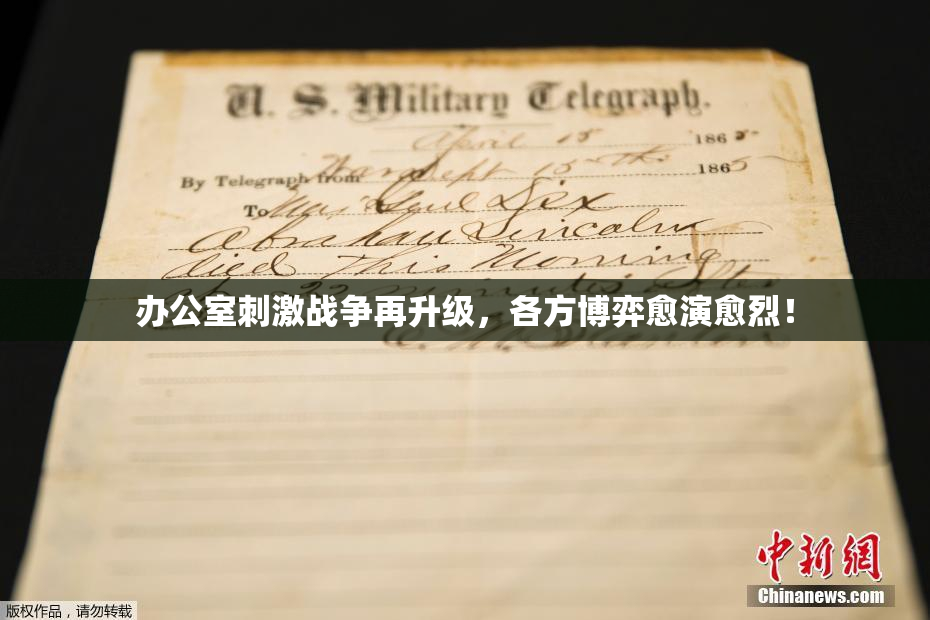 U. S. Military Telegraph.
April 15 1865
By Telegraph from War Dept 15th 1865
To Maj Genl Dix
Abraham Lincoln
died This Morning
at 22 minutes after
办公室刺激战争再升级，各方博弈愈演愈烈！
E. M. Stanton
中新網
Chinanews.com
版权作品，请勿转载